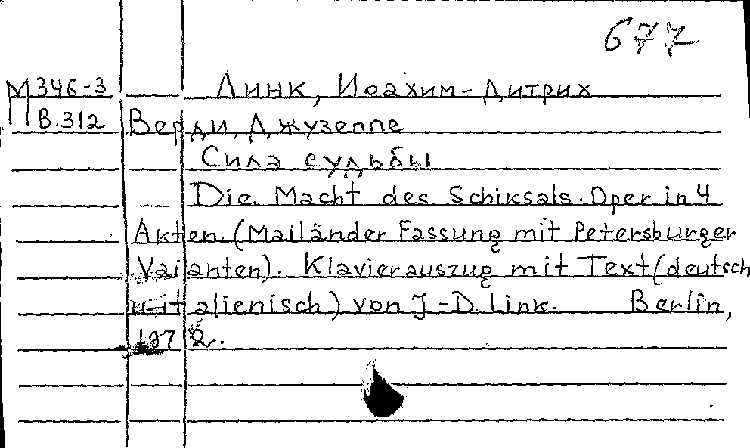 677
М346-3 Линк, Иоахим-Дитрих
В.312 Верди, Джузеппе
Сила судьбы
Die Macht des Schiksals. Oper in 4
Akten. (Mailänder Fassung mit Petersburger
Vaianten). Klavierauszug mit Text (deutsch
u-italienisch) von J-D. Link. Berlin,
1972.